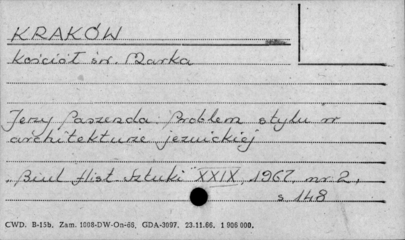 KRAKÓW
Kościół św. Marka
Jerzy Paszenda. Problem stylu w
architekturze jezuickiej
"Biul. Hist. Sztuki" XXIX, 1967, nr 2,
s. 148
CWD. B-15b. Zam. 1008-DW-On-66, GDA-3097. 23.11.66. 1 906 000.